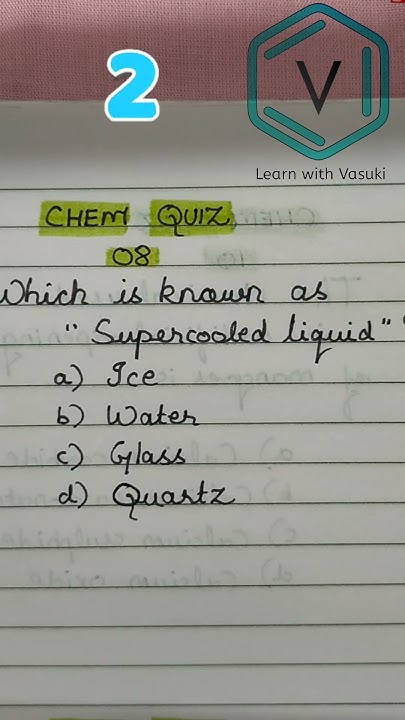 2
V
Learn with Vasuki
CHEM QUIZ
08
Which is known as
"Supercooled liquid"
a) Ice
b) Water
c) Glass
d) Quartz